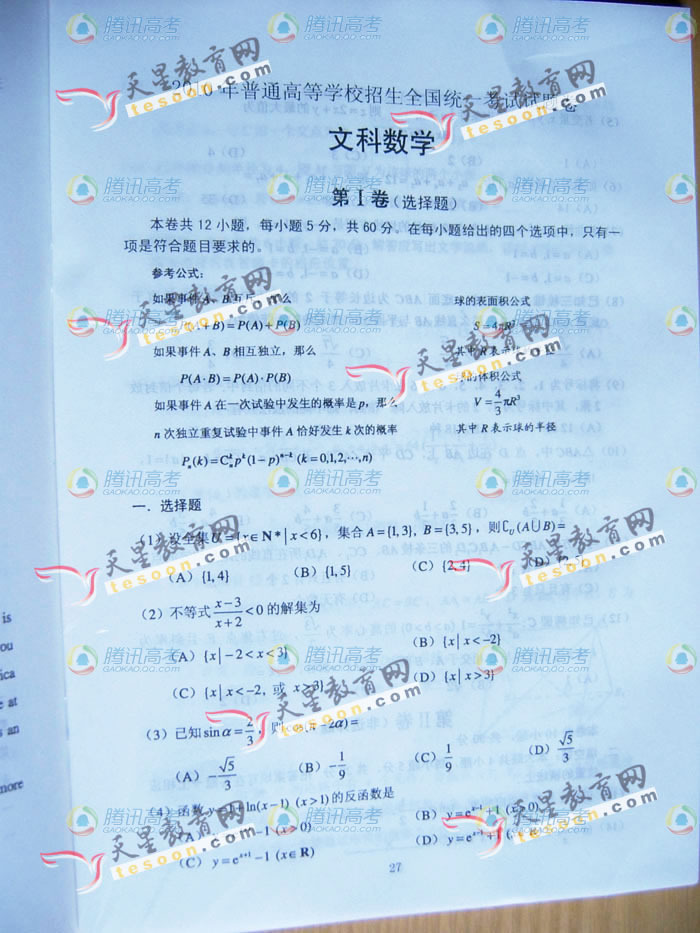 2010年普通高等学校招生全国统一考试试题卷
文科数学
第Ⅰ卷(选择题)
本卷共 12 小题，每小题 5 分，共 60 分，在每小题给出的四个选项中，只有一
项是符合题目要求的。
参考公式：
如果事件 A、B 互斥，那么 球的表面积公式
P(A+B)=P(A)+P(B) S=4πR²
如果事件 A、B 相互独立，那么 其中 R 表示球的半径
P(A·B)=P(A)·P(B) 球的体积公式
如果事件 A 在一次试验中发生的概率是 p，那么 V=4/3πR³
n 次独立重复试验中事件 A 恰好发生 k 次的概率 其中 R 表示球的半径
Pₙ(k)=Cₙᵏpᵏ(1−p)ⁿ⁻ᵏ (k=0,1,2,…,n)
一．选择题
(1) 设全集U={x∈N*|x<6}，集合 A={1,3}, B={3,5}，则∁U(A∪B)=
(A) {1,4} (B) {1,5} (C) {2,4} (D) {2,5}
(2) 不等式 (x−3)/(x+2)<0 的解集为
(A) {x|−2<x<3} (B) {x|x<−2}
(C) {x|x<−2, 或 x>3} (D) {x|x>3}
(3) 已知 sinα=2/3，则cos(π−2α)=
(A) −√5/3 (B) −1/9 (C) 1/9 (D) √5/3
(4) 函数 y=1+ln(x−1) (x>1) 的反函数是
(A) −1 (x>0) (B) y=eˣ⁻¹+1 (x>0)
(C) y=eˣ⁺¹−1 (x∈R) (D) y=eˣ⁻¹+1
27
腾讯高考
GAOKAO.QQ.COM
天星教育网
tesoon.com
is
ou
ica
e at
s an
more